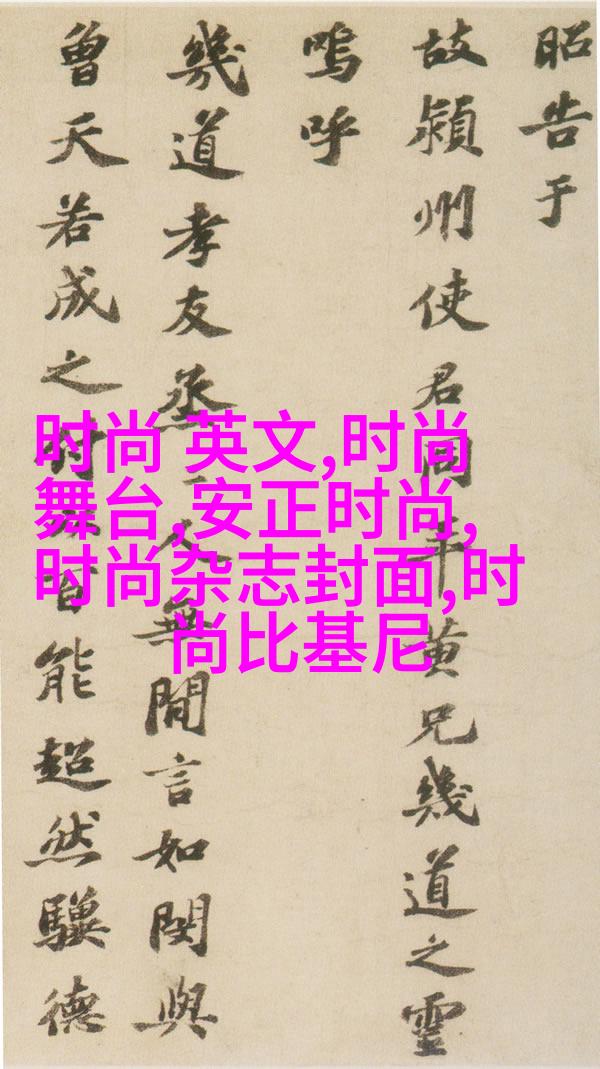 昭告于
故潁州使君同年黄兄幾道之靈
嗚呼
幾道孝友烝〻人無閒言如閔與
曾天若成之付以百能超然驥德
时尚 英文,时尚
舞台,安正时尚,
时尚杂志封面,时
尚比基尼